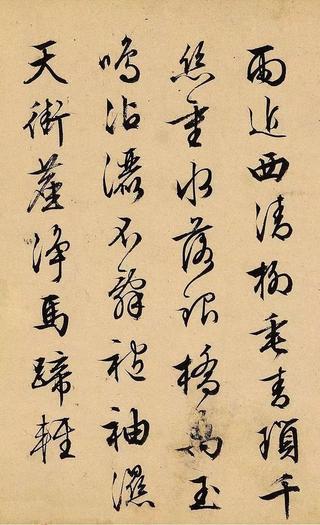 雨近西清柳垂青瑣千
絲重水落銀橋萬玉
鳴沾灑不辭袍袖濕
天街塵淨馬蹄輕